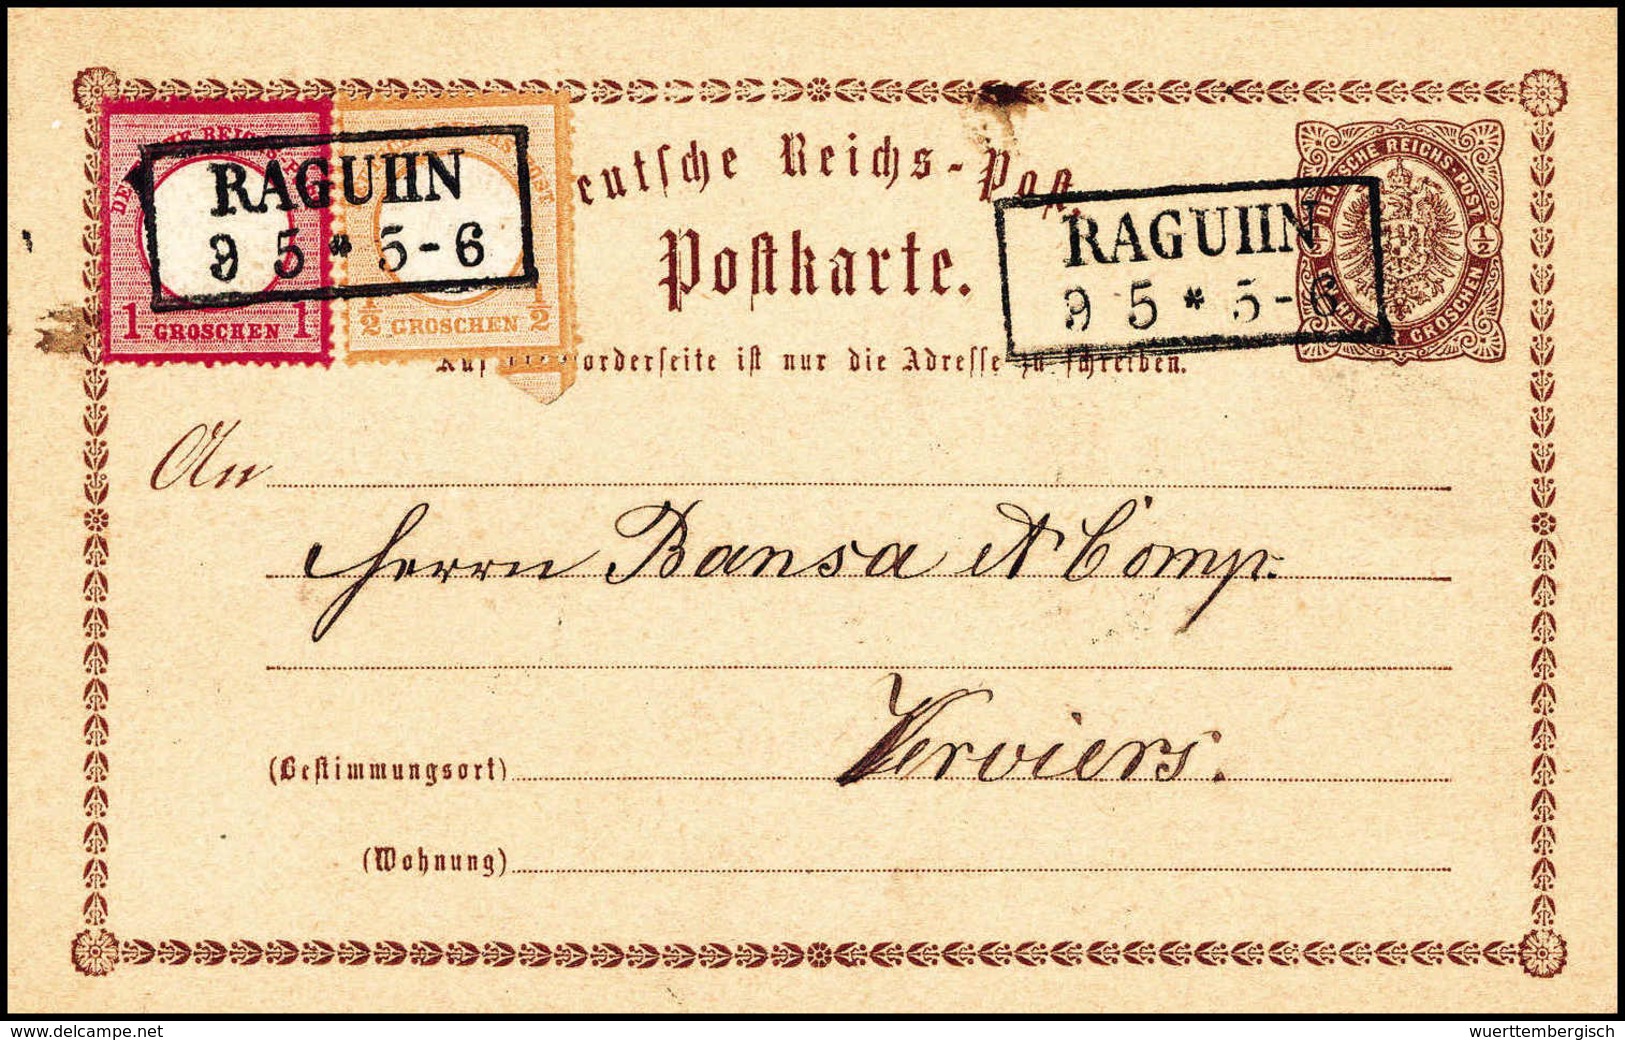 DEUTSCHE REICHS-POST
RAGUHN
9 5 * 5-6
1 GROSCHEN 1
1/2 GROSCHEN 1/2
Deutsche Reichs-Post.
Postkarte.
RAGUHN
9 5 * 5-6
DEUTSCHE REICHS-POST
1/2 1/2
GROSCHEN
Auf Vorderseite ist nur die Adresse zu schreiben.
An
Herrn Bansa & Comp.
(Bestimmungsort) Verviers.
(Wohnung)
www.delcampe.net
wuerttembergisch